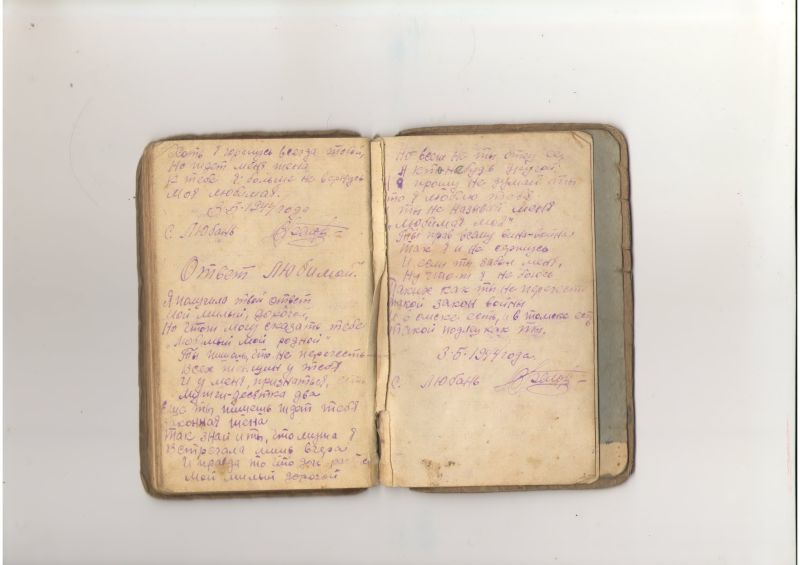 Хоть я горжусь всегда тобой,
Но ждет меня жена
К тебе я больше не вернусь
Моя любимая.
3-5-1944 года
с. Любань
Ответ Любимой.
Я получила твой ответ
Мой милый, дорогой,
Но чтож могу сказать тебе
"Любимый мой родной"
Ты пишешь, что не перечесть
Всех женщин у тебя
И у меня, признаться, есть
Мужчин десятка два
Еще ты пишешь ждет тебя
законная жена
Так знай и ты, что мужа я
Встречала лишь вчера
И правда то что он
Мой милый дорогой
Но всеж не ты отец ее,
А кто нибудь другой
прошу не думай ты
то я люблю тебя
ты не называй меня
"любимая моя"
Ты прав всему вина-война
Так я и не сержусь
И если ты забыл меня,
Ну чтож я не боюсь
Таких как ты не перечесть
Такой закон войны
и в омске есть, и в томске есть
такой подлец как ты.
3-5-1944 года.
с. Любань